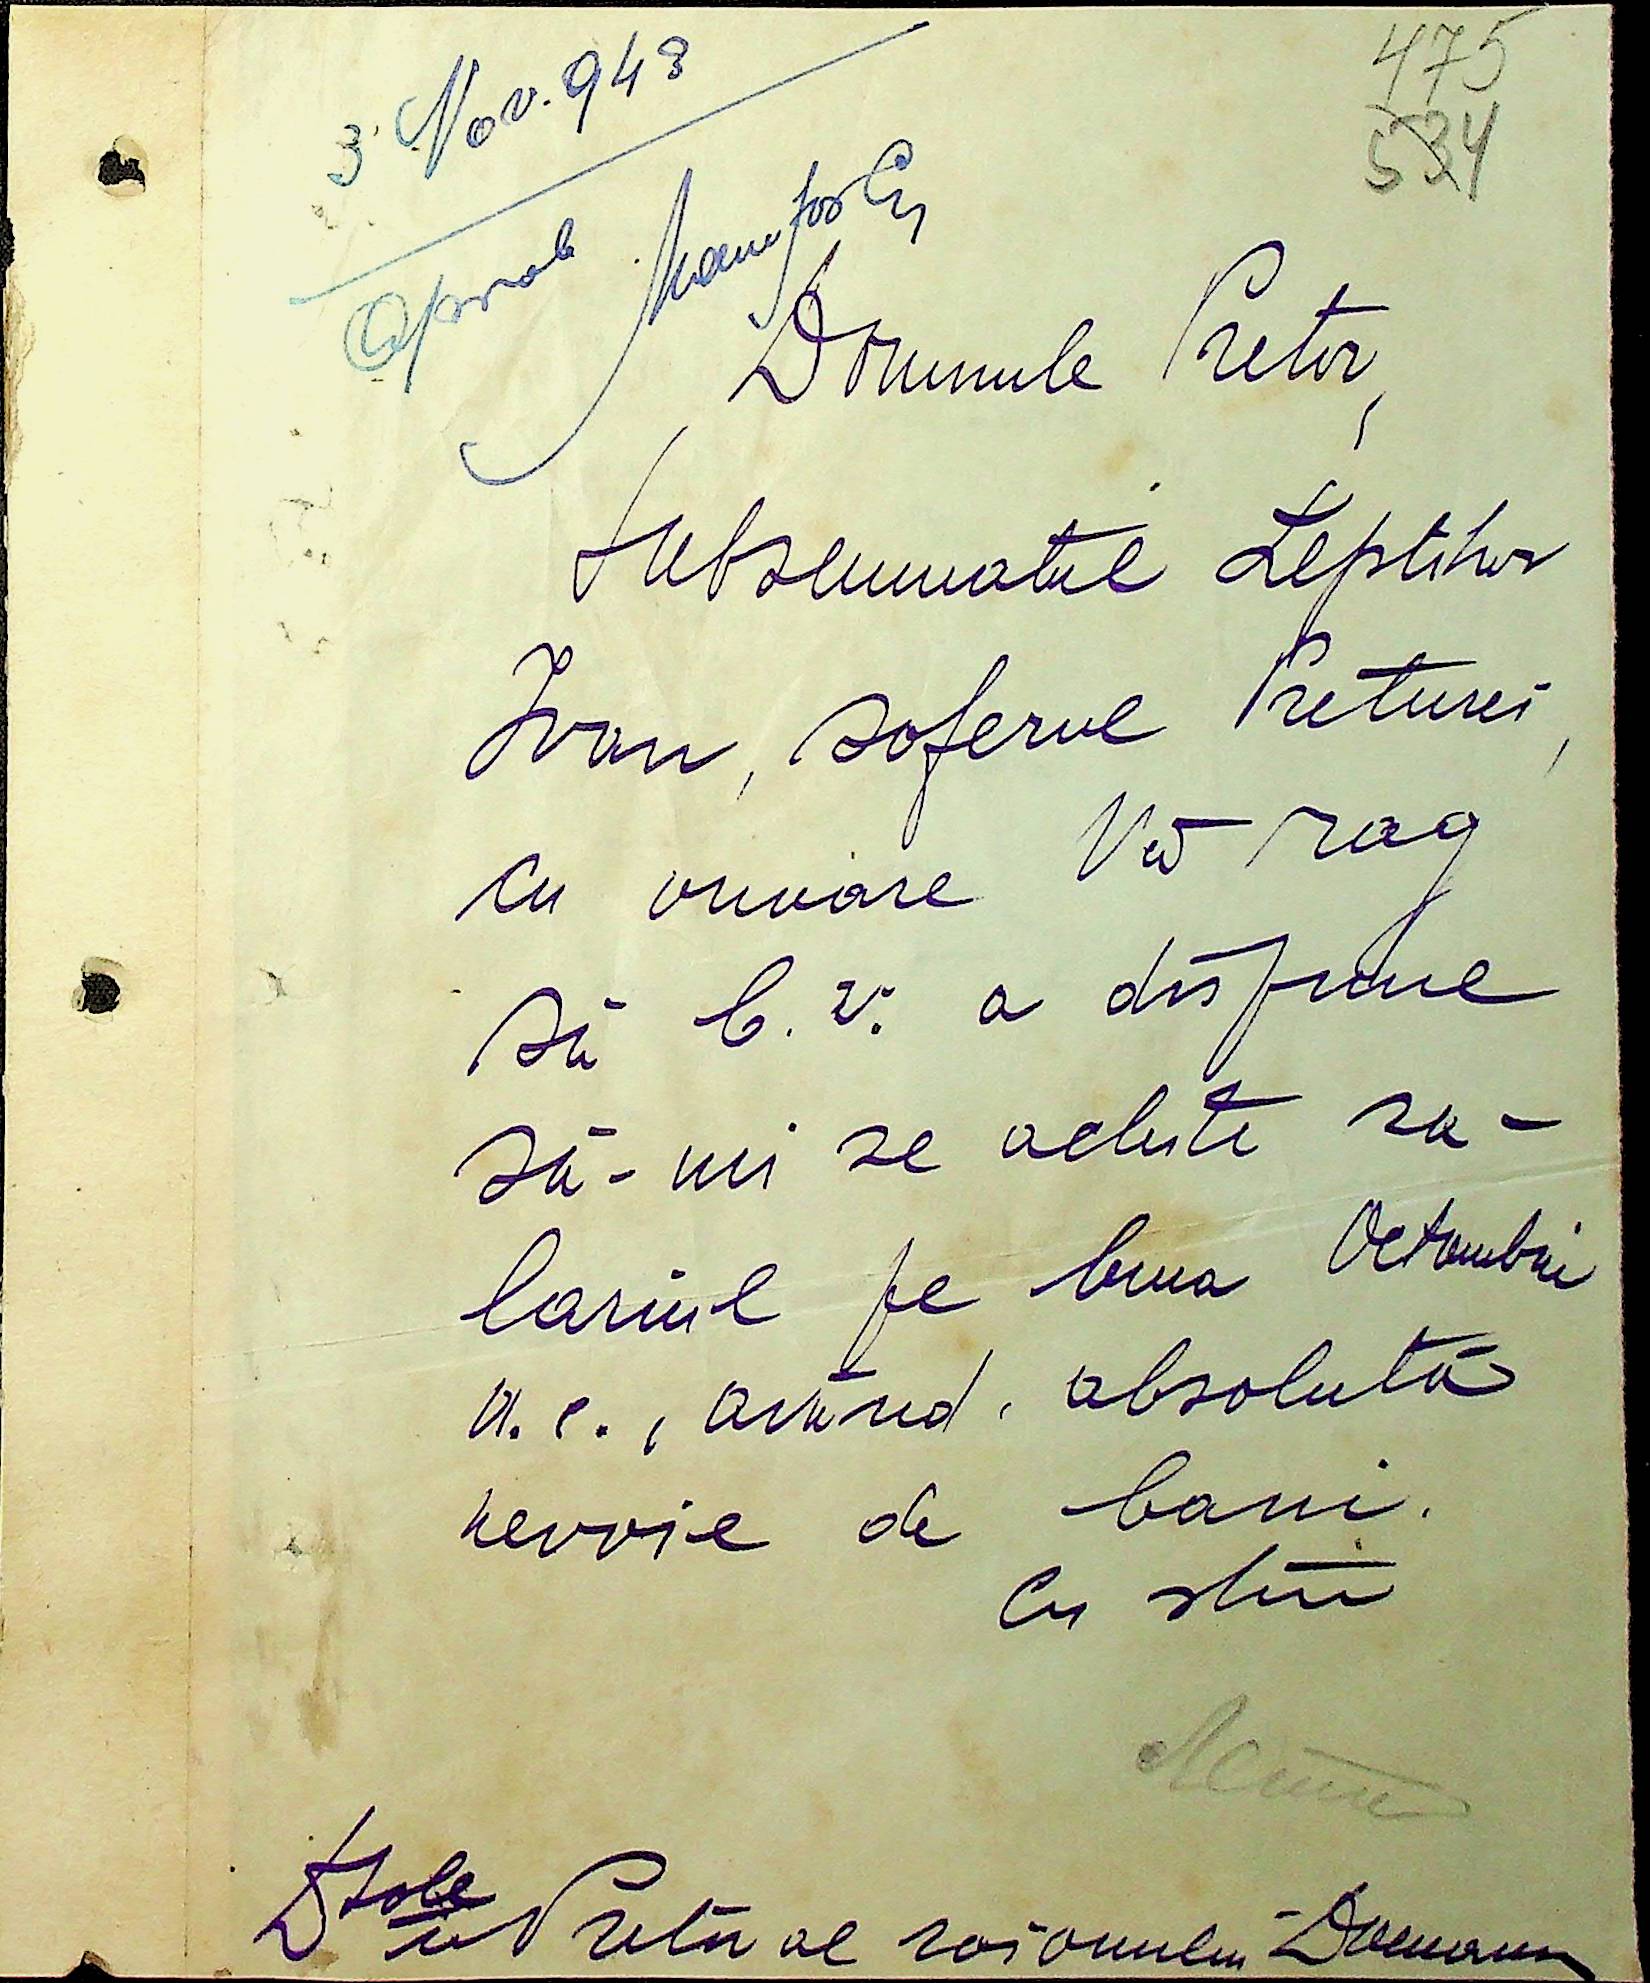 475
534
3 Nov. 943
Aprob
Domnule Pretor,
Subsemnatul Leptihov
Ivan, soferul Preturei,
cu onoare Vă rog
să b. v. a dispune
să-mi se achite sa-
lariul pe luna Octombrie
a. c., având absolută
nevoie de bani.
Cu stimă
Dsale
Pretor al raionului